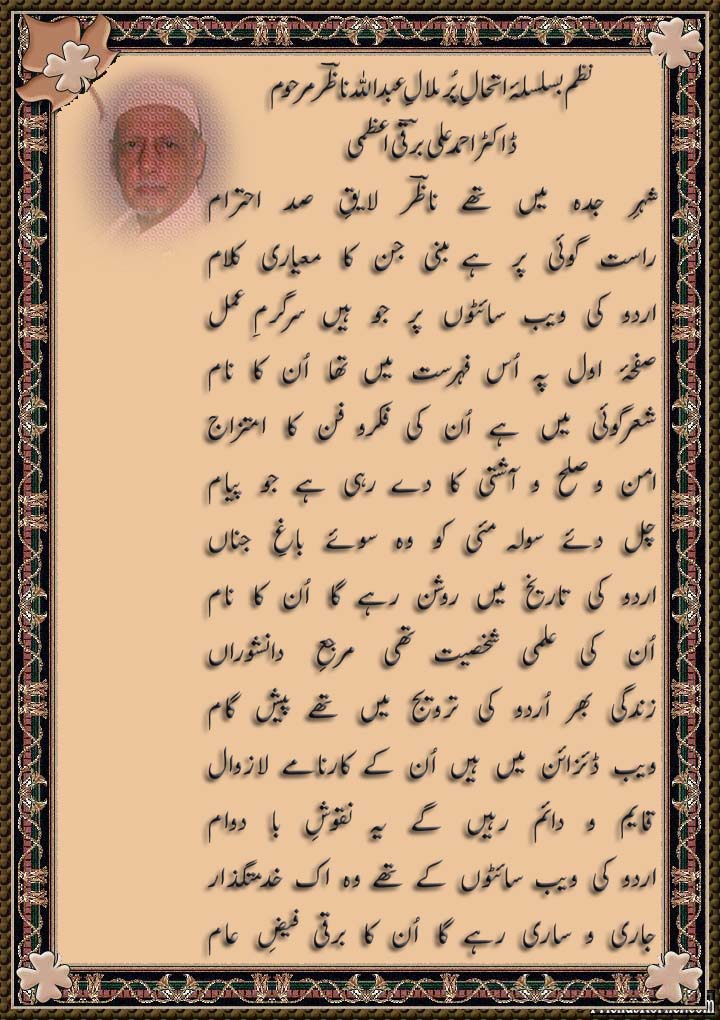 نظم بسلسلۂ اتحالِ پُر ملالِ عبداللہ ناظرؔ مرحوم
ڈاکٹر احمد علی برقیؔ اعظمی
شہرِ جدہ میں تھے ناظرؔ لایقِ صد احترام
راست گوئی پر ہے مبنی جن کا معیاری کلام
اردو کی ویب سائٹوں پر جو ہیں سرگرمِ عمل
صفحۂ اول پہ اُس فہرست میں تھا اُن کا نام
شعرگوئی میں ہے اُن کی فکرو فن کا امتزاج
امن و صلح و آشتی کا دے رہی ہے جو پیام
چل دئے سولہ مئی کو وہ سوئے باغِ جناں
اردو کی تاریخ میں روشن رہے گا اُن کا نام
اُن کی علمی شخصیت تھی مرجعِ دانشوراں
زندگی بھر اُردو کی ترویج میں تھے پیش گام
ویب ڈئزائن میں ہیں اُن کے کارنامے لازوال
قایم و دائم رہیں گے یہ نقوشِ با دوام
اردو کی ویب سائٹوں کے تھے وہ اک خدمتگذار
جاری و ساری رہے گا اُن کا برقی فیضِ عام